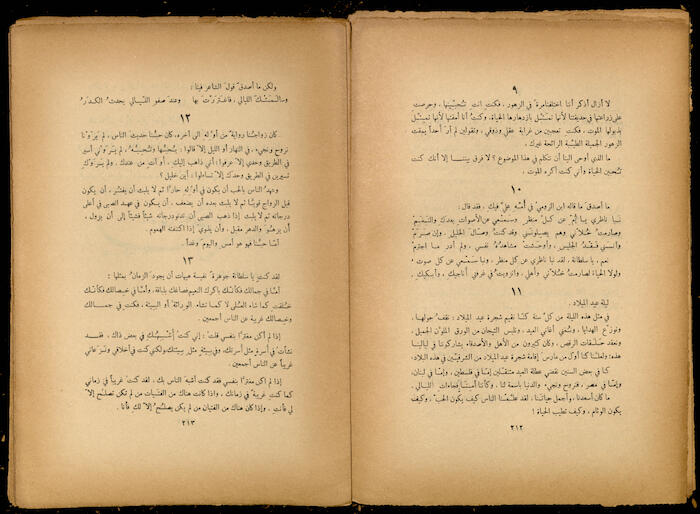 ٩
لا أزال أذكر أننا اختلفنا مرة في الزهور، فكنت أنت تحبّينها، وحرصت
على زراعتها في حديقتنا لأنها تمثل بازدهارها الحياة، وكنت أنا أمقتها لأنها تمثل
بذبولها الموت، فكنت تعجبين من غرابة عقلي وذوقي، وتقولين لم أر أحداً يمقت
الزهور الجميلة الطيبة الرائحة غيرك.
ما الذي أوحى الينا أن نتكلم في هذا الموضوع؟ لا فرق بيننا إلا أنك كنت
تحبين الحياة وأني كنت أكره الموت.
١٠
ما أصدق ما قاله ابن الرومي في أمّه علي فيك، فقد قال:
نبا ناظري يا أمّ عن كل منظر وسمعي عن الأصوات بعدك والنغم
وصارمت خلاني وهم يصلونني وقد كنت وصال الخليل وإن صرم
وآنسني فقد الجليس، وأوحشت مشاهده نفسي، ولم أدر ما اجترم
نعم، يا سلطانة، لقد نبا ناظري عن كل منظر، ونبا سمعي عن كل صوت
ولولا الحياة لصارمت خلاني وأهلي، وانزويت في غرفتي أناجيك، وأسكبك.
١١
ليلة عيد الميلاد.
في مثل هذه الليلة من كل سنة كنا نقيم شجرة عيد الميلاد، نقف حولها،
ونوزع الهدايا، ونغني أغاني العيد، ونلبس التيجان من الورق الملون الجميل،
ونعقد حلقات الرقص، وكان كثيرون من الأهل والأصدقاء يشاركوننا في ليالينا
هذه؛ ولعلنا كنا أول من مارس إقامة شجرة عيد الميلاد من الشرقيين في هذه البلاد.
كنا في بعض السنين نقضي عطلة العيد متنقلين إما في فلسطين، وإما في لبنان،
وإما في مصر، فنروح ونجيء والدنيا باسمة لنا، وكأننا أمنا فجاءات الليالي.
ما كان أسعدنا، وأجمل حياتنا، لقد علمنا الناس كيف يكون الحب، وكيف
يكون الوئام، وكيف تطيب الحياة!
٢١٢
ولكن ما أصدق قول الشاعر فينا:
وسالمتك الليالي، فاغتررت بها وعند صفو الليالي يحدث الكدر
١٢
كان زواجنا رواية من أوله الى آخره، كان حبنا حديث الناس، لم يرونا
نروح ونجيء، في النهار أو الليل إلا قالوا: يحبها وتحبه، لم يروني أسير
في الطريق وحدي إلا عرفوا: أني ذاهب إليك، أو آت من عندك. ولم يروك
تسيرين في الطريق وحدك إلا تساءلوا: أين خليل؟
وعهد الناس بالحب أن يكون في أوله حاراً ثم لا يلبث أن يفتر، أن يكون
قبل الزواج قوياً ثم لا يلبث بعده أن يضعف، أن يكون في عهد الصبى في أعلى
درجاته ثم لا يلبث إذا ذهب الصبى أن تدنو درجاته شيئاً فشيئاً إلى أن يزول،
أن يزهو والدهر مقبل، وأن يذوي إذا اكتنفته الهموم.
أما حبنا فهو هو أمس واليوم وغداً.
١٣
لقد كنت يا سلطانة جوهرة نفيسة هيهات أن يجود الزمان بمثلها:
أما في جمالك فكأنك باكرك النعيم فصاغك بلباقة، وأما في خصالك فكأنك
خلقت كما تشاء المثلى لا كما تشاء الوراثة أو البيئة، فكنت في جمالك
وخصالك غريبة عن الناس أجمعين.
إذا لم أكن مغتراً بنفسي قلت: إني كنت أشبهك في بعض ذاك، فقد
نشأت في أسرة مثل أسرتك، وفي بيئة مثل بيئتك ولكني كنت في أخلاقي ونزعاتي
غريباً عن الناس أجمعين.
إذا لم أكن مغتراً بنفسي فقد كنت أشبه الناس بك، لقد كنت غريباً في زماني
كما كنت غريبة في زمانك، وإذا كان هناك من الفتيات من لم تكن تصلح إلا
لي فأنت، وإذا كان هناك من الفتيان من لم يكن يصلح إلا لك فأنا.
٢١٣